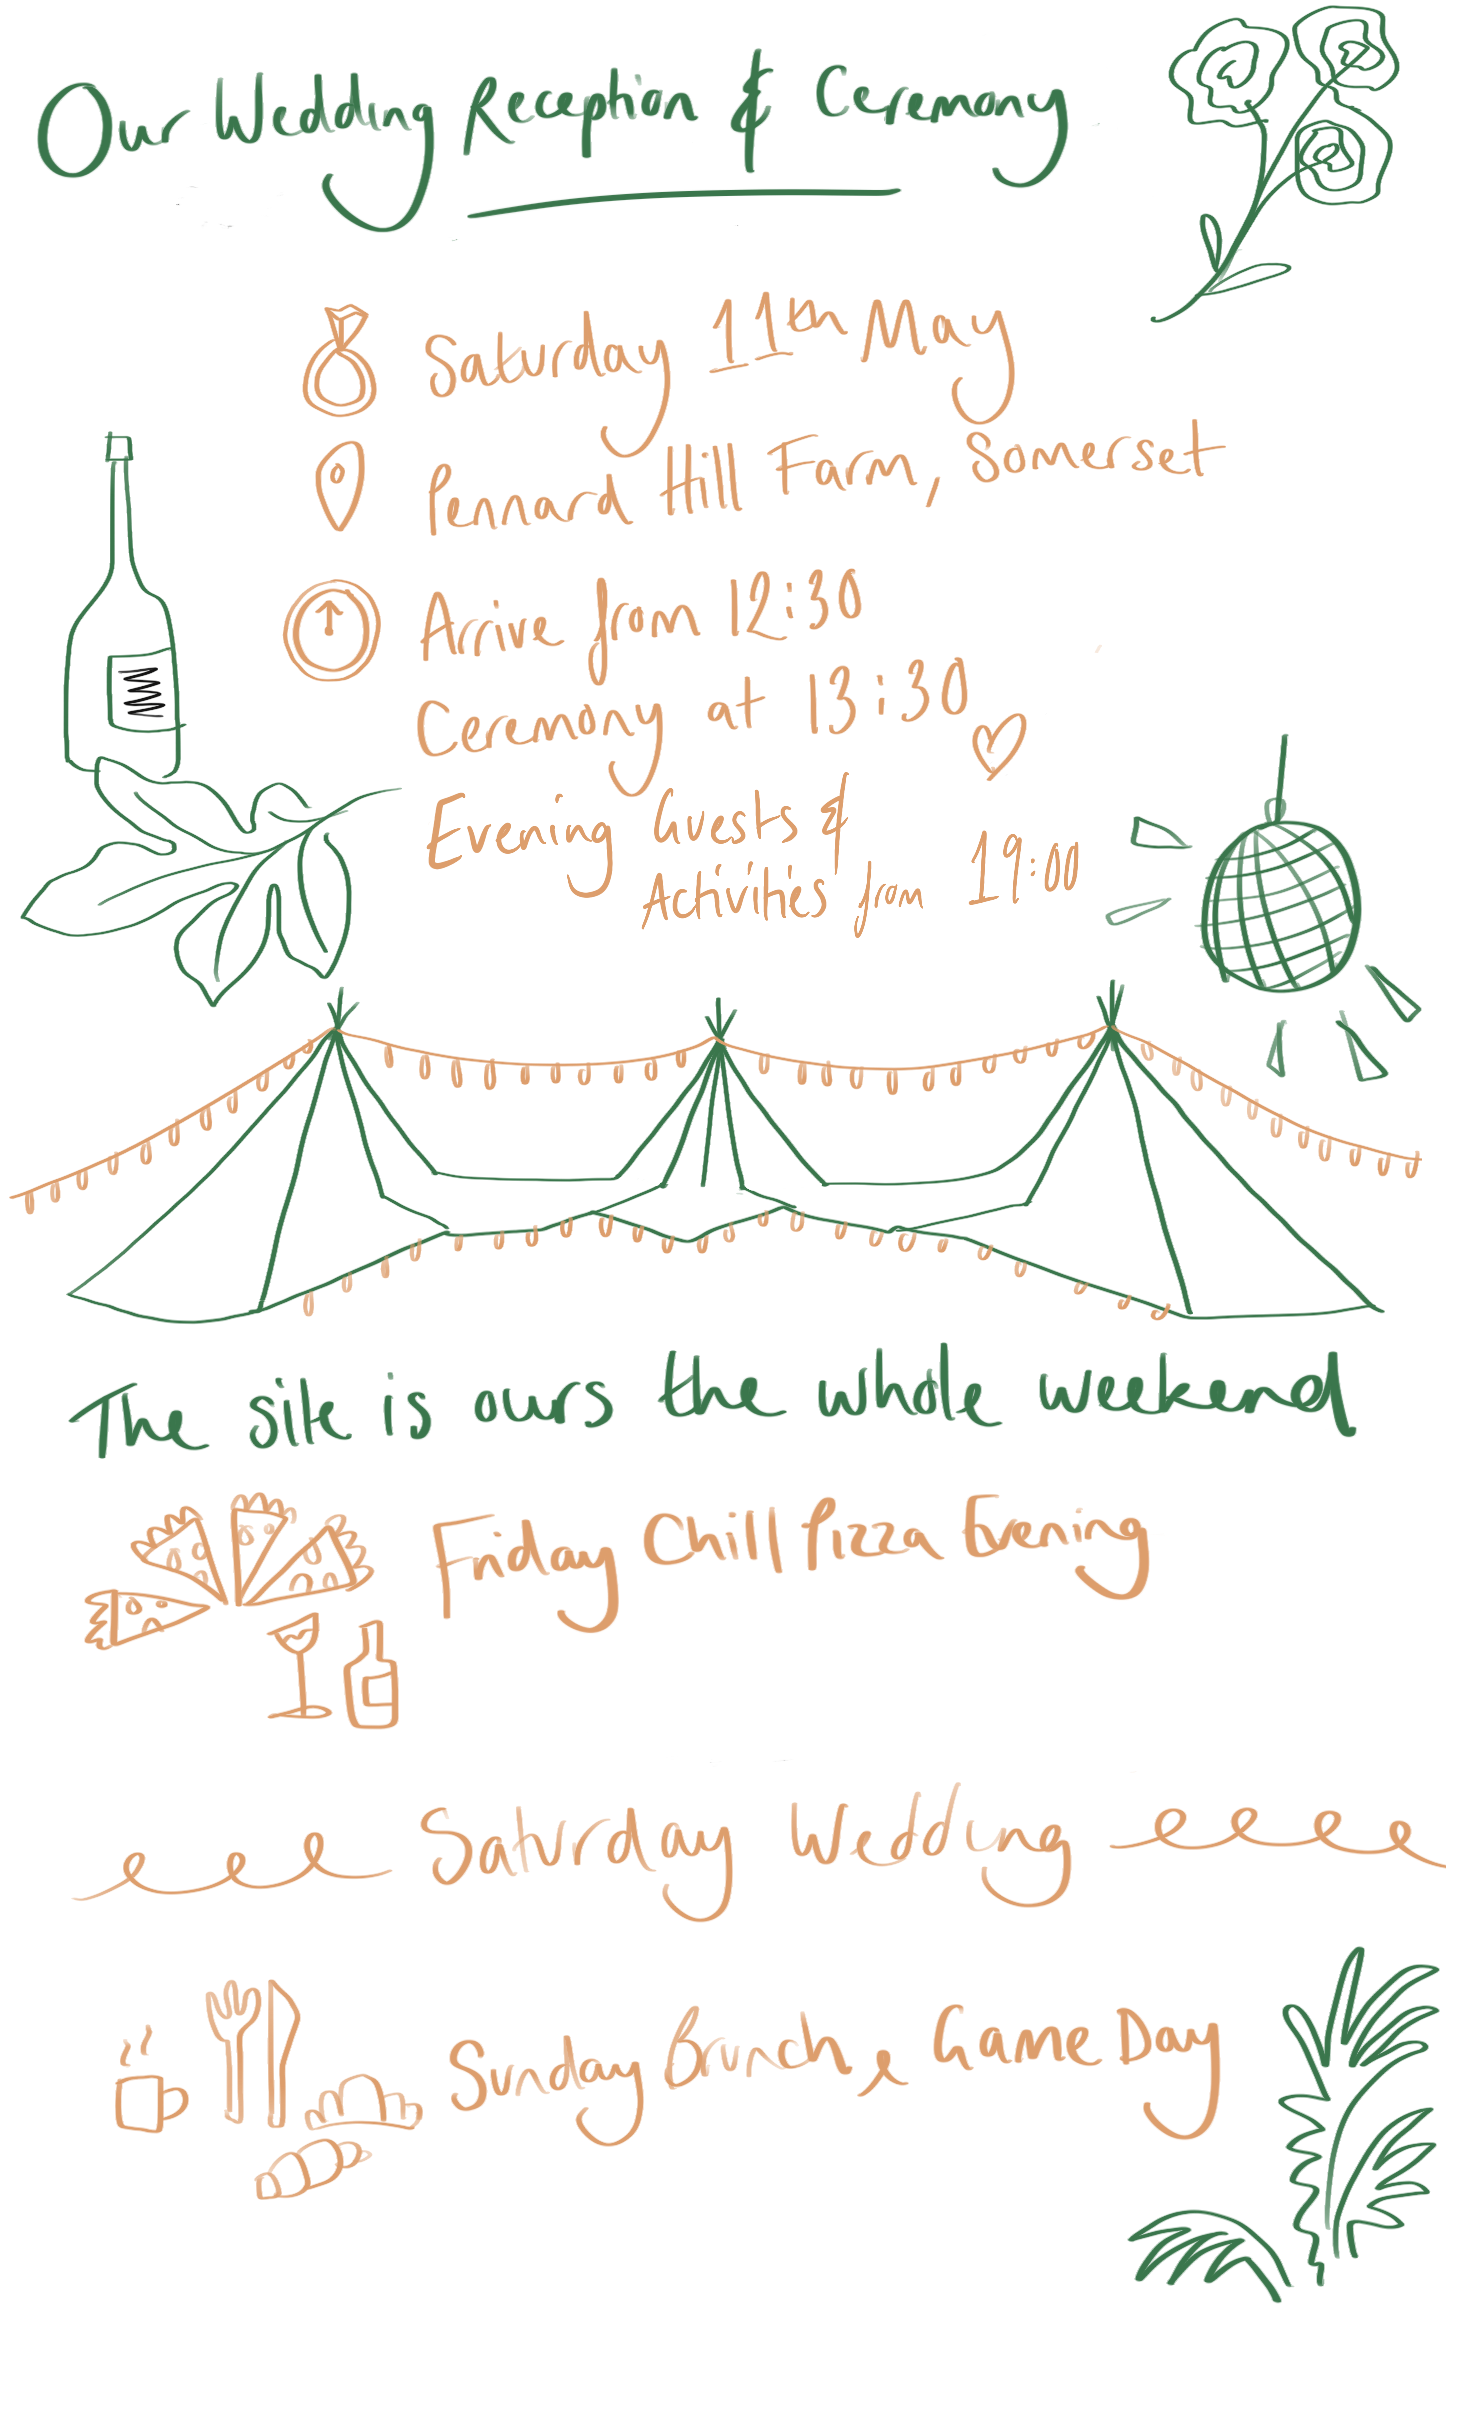 Our Wedding Reception & Ceremony
Saturday 11th May
Pennard Hill Farm, Somerset
Arrive from 12:30
Ceremony at 13:30
Evening Guests &
Activities from 19:00
The site is ours the whole weekend
Friday Chill Pizza Evening
Saturday Wedding
Sunday Brunch & Game Day